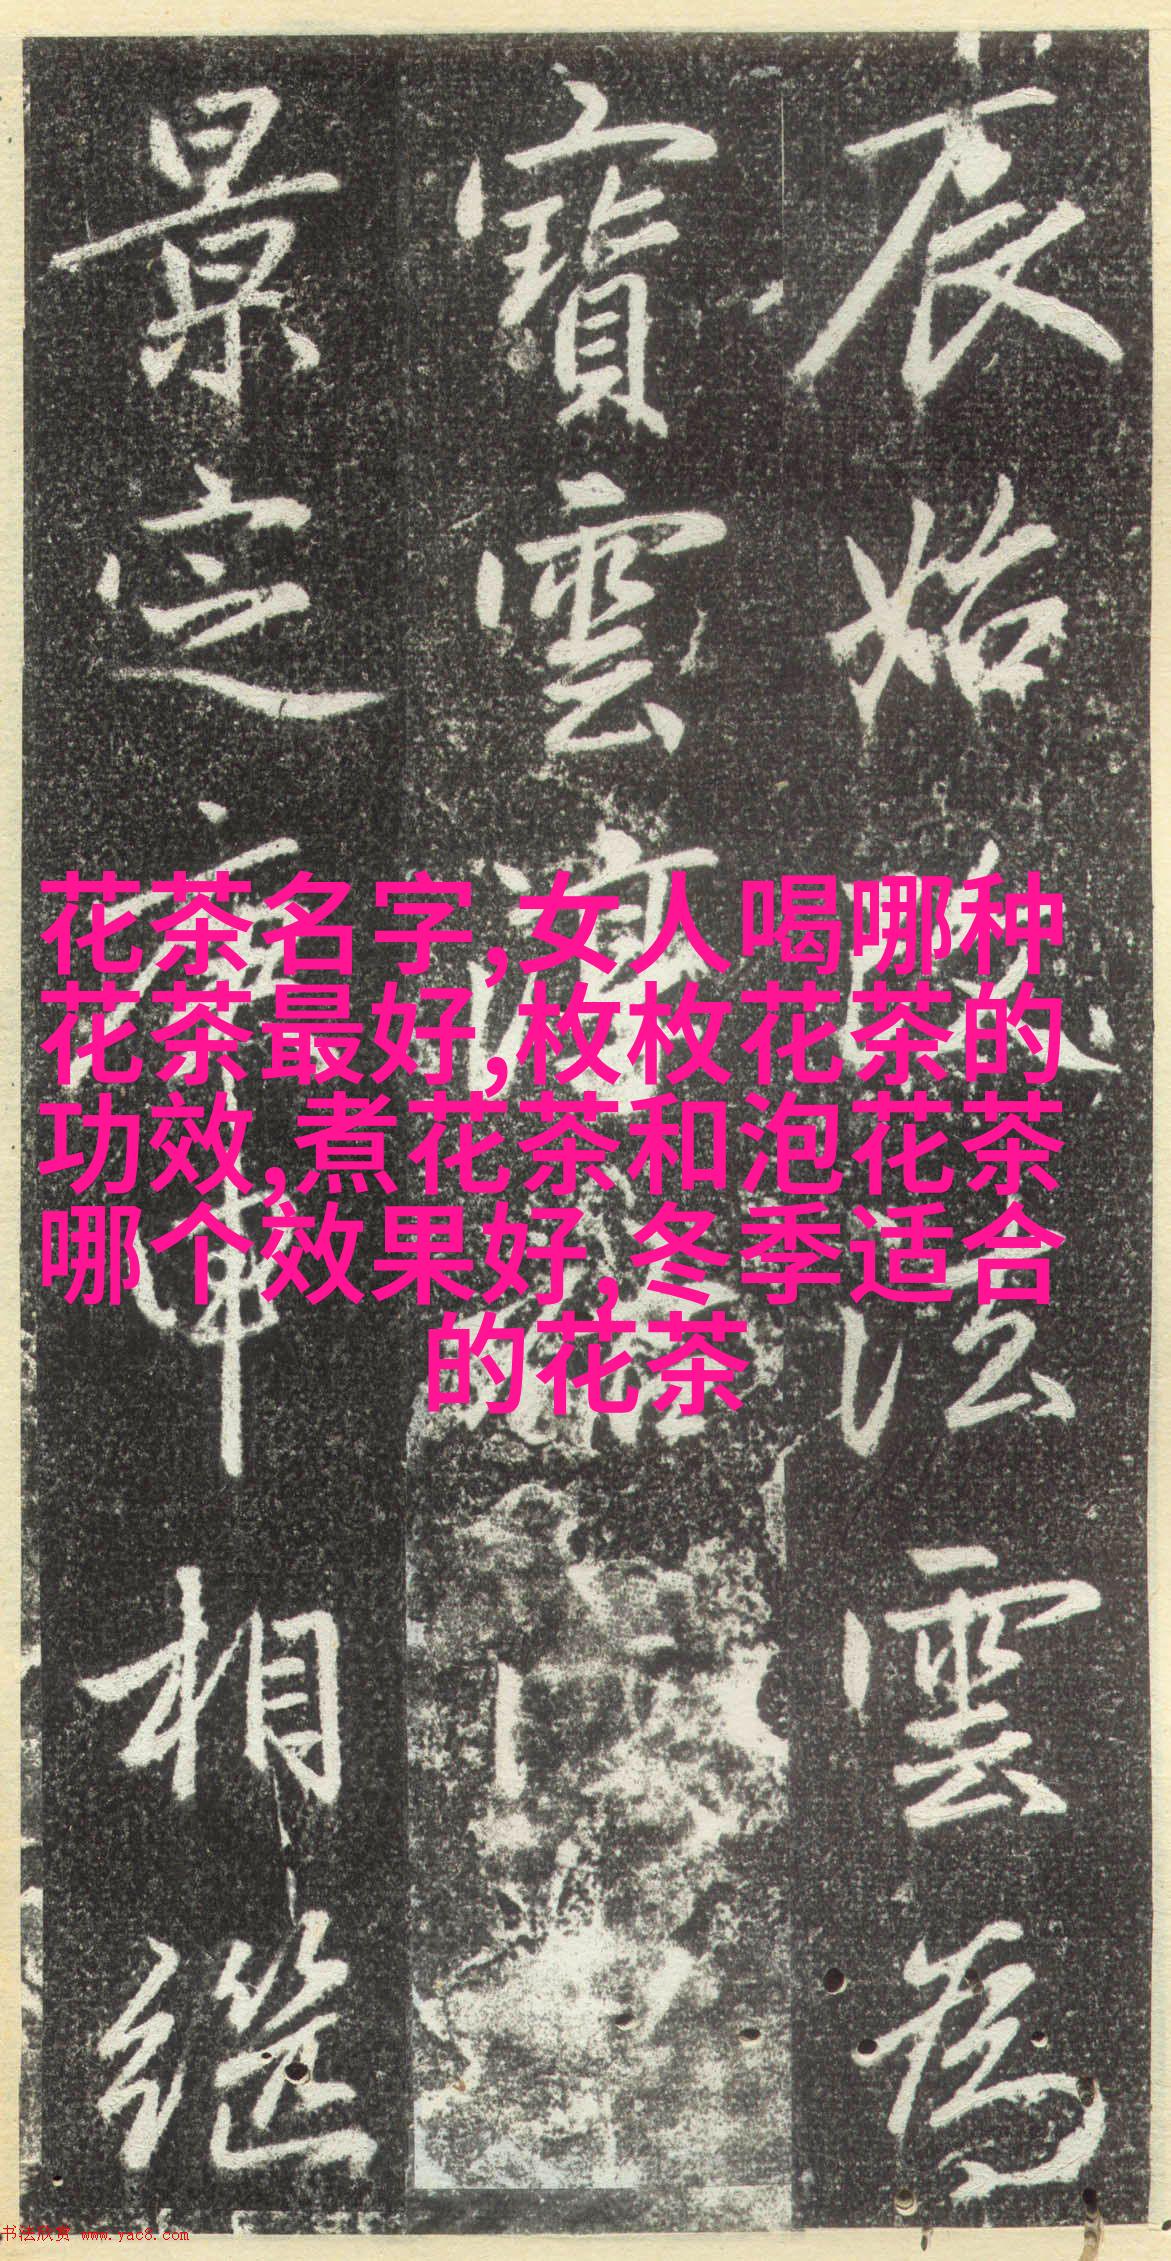 辰始啟法雲為
寶雲
景定庚申相繼
花茶名字,女人喝哪种
花茶最好,枚枚花茶的
功效,煮花茶和泡花茶
哪个效果好,冬季适合
的花茶
书法欣赏 www.yac8.com